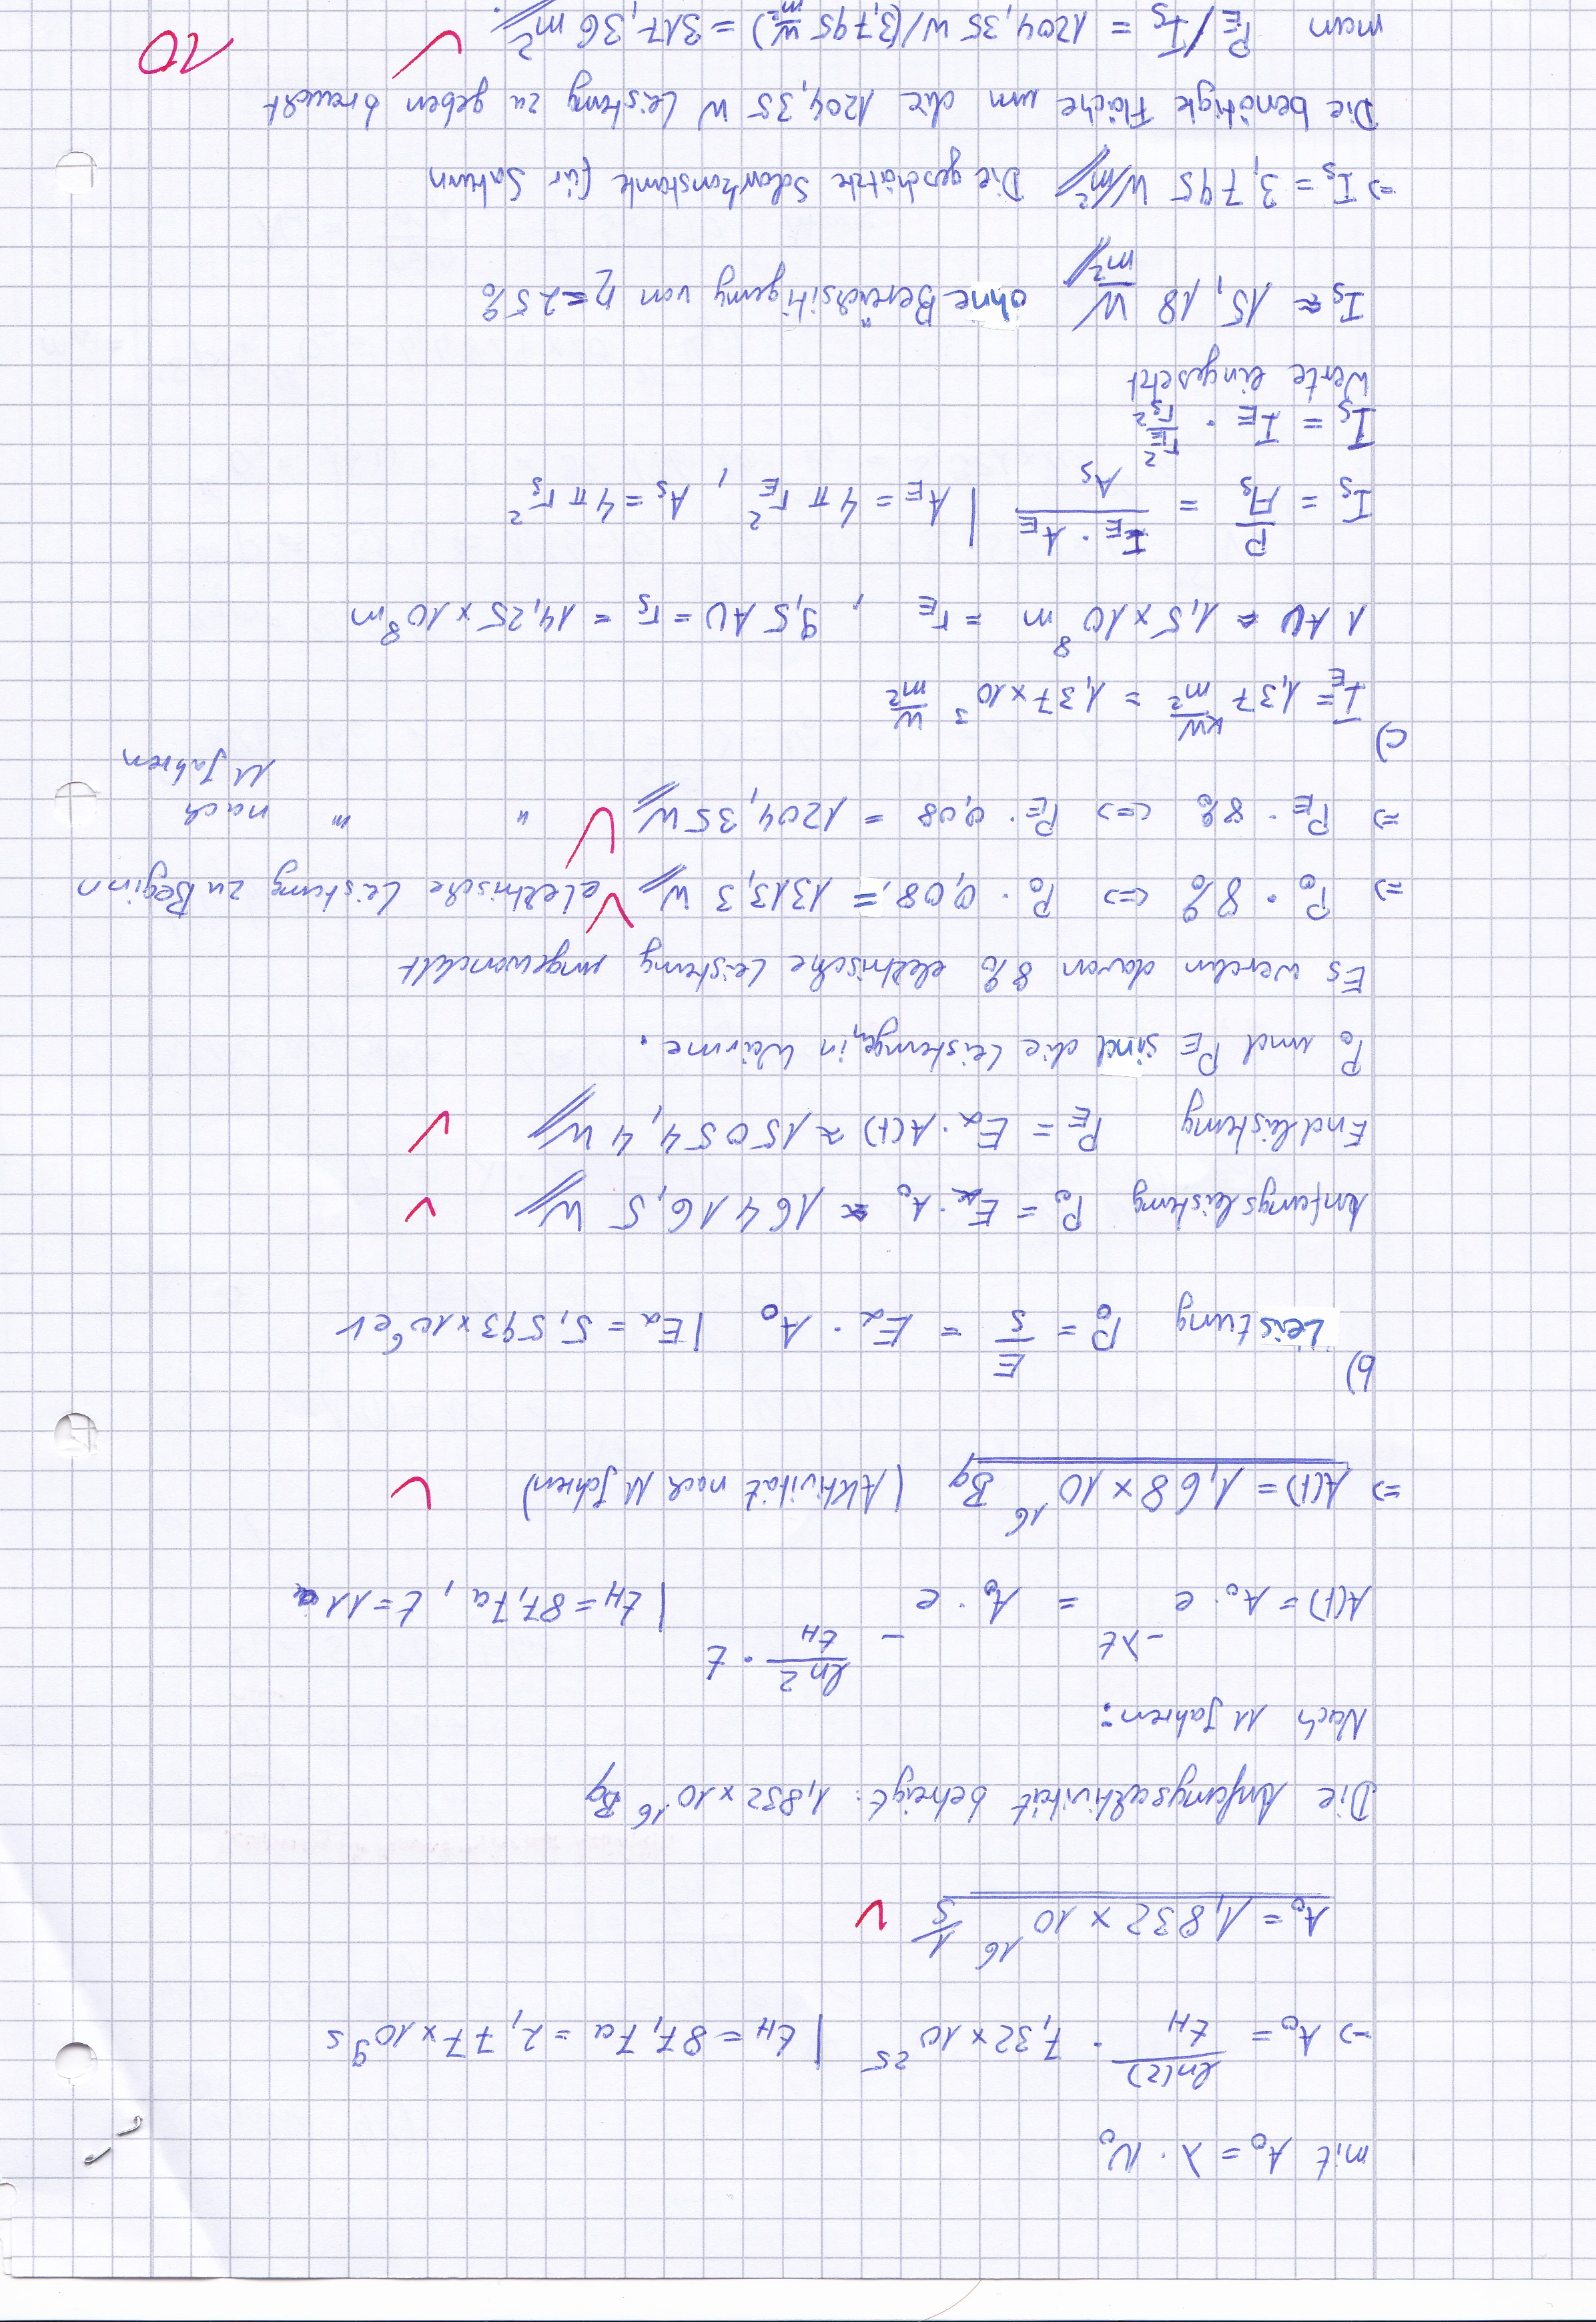 mit A₀ = λ · N₀
-> A₀ = ln(2)/t_H · 7,32×10²⁵ | t_H = 87,7a = 2,77×10⁹ s
A₀ = 1,832 × 10¹⁶ 1/s ✓
Die Anfangsaktivität beträgt: 1,832×10¹⁶ Bq
Nach 11 Jahren:
A(t) = A₀ · e^(-λt) = A₀ · e^(- ln2/t_H · t) | t_H = 87,7a, t = 11a
=> A(t) = 1,68×10¹⁶ Bq (Aktivität nach 11 Jahren) ✓
b)
Leistung P₀ = E/s = E_α · A₀ | E_α = 5,593×10⁶ eV
Anfangsleistung P₀ = E_α · A₀ ≈ 16416,5 W ✓
Endleistung P_E = E_α · A(t) ≈ 15054,4 W ✓
P₀ und P_E sind die Leistungen in Wärme.
Es werden davon 8% elektrische Leistung umgewandelt
=> P₀ · 8% <=> P₀ · 0,08 = 1313,3 W ✓ elektrische Leistung zu Beginn
=> P_E · 8% <=> P_E · 0,08 = 1204,35 W ✓ " " nach
11 Jahren
c)
I_E = 1,37 kW/m² = 1,37×10³ W/m²
1 AU ≈ 1,5×10⁸ m = r_E , 9,5 AU = r_S = 14,25×10⁸ m
I_S = P/A_S = I_E · A_E / A_S | A_E = 4π r_E², A_S = 4π r_S²
I_S = I_E · r_E²/r_S²
Werte eingesetzt
I_S ≈ 15,18 W/m² ohne Berücksitigung von η = 25%
=> I_S = 3,795 W/m² Die geschätzte Solarkonstante für Saturn
Die benötigte Fläche um die 1204,35 W Leistung zu geben braucht
man P_E/I_S = 1204,35 W/(3,795 W/m²) = 317,36 m². ✓ 10